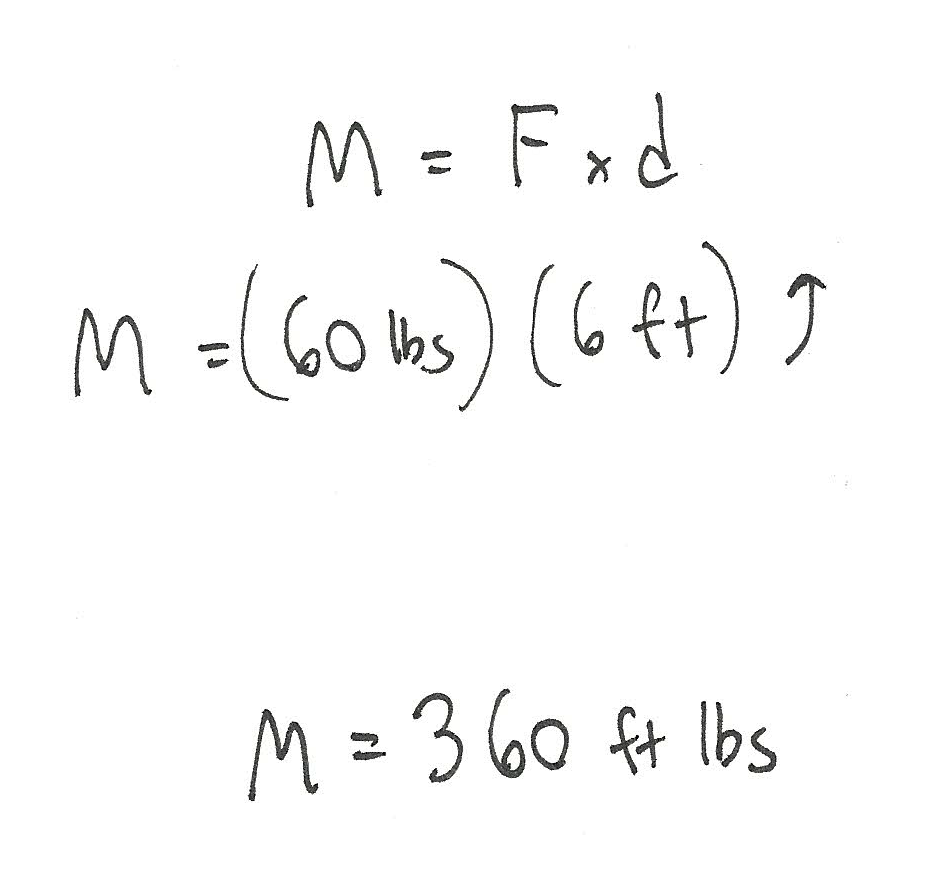 M = F x d
M = (60 lbs) (6 ft) ↑
M = 360 ft lbs